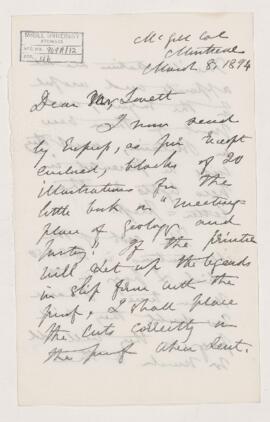 McGILL UNIVERSITY
ARCHIVES
ACC. NO.
REF.
McGill Col
Montreal
March 8, 1894
Dear Mr Lovett
I now send
by Express, as per
enclosed, blocks of 20
illustrations for the
little book on "meeting
place of Geology and
History". If the printer
will set up the legends
in slip form with the
proof, I shall place
the cuts correctly in
the proof when sent.